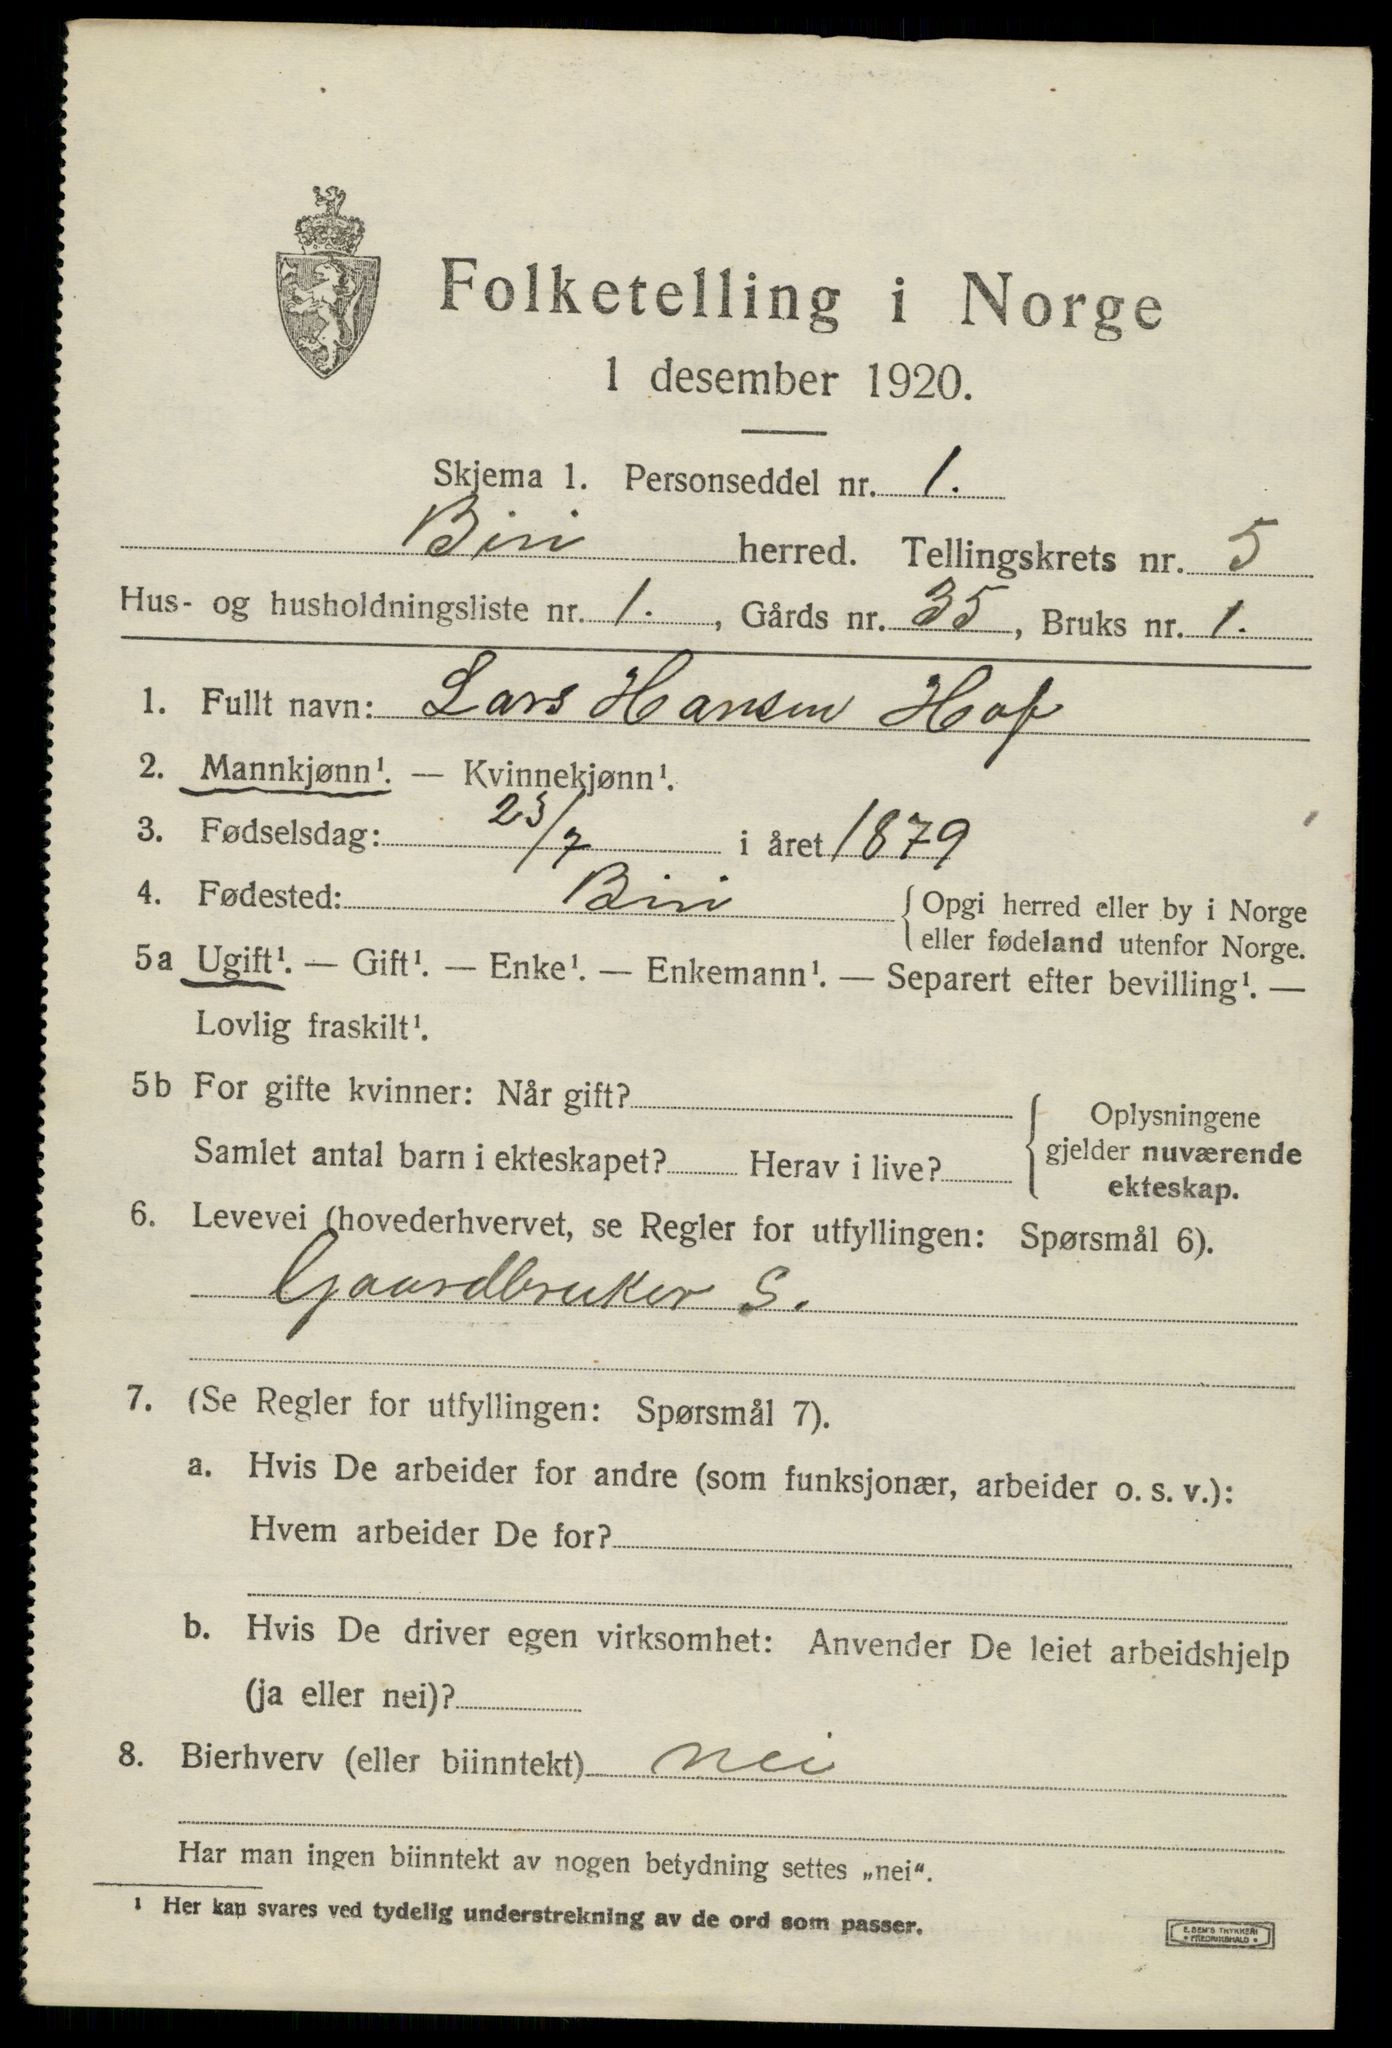 Folketelling i Norge
1 desember 1920.
Skjema 1. Personseddel nr. 1.
Biri herred. Tellingskrets nr. 5
Hus- og husholdningsliste nr. 1. , Gårds nr. 35 , Bruks nr. 1.
1. Fullt navn: Lars Hansen Hof
2. Mannkjønn¹. — Kvinnekjønn¹.
3. Fødselsdag: 25/7 i året 1879
4. Fødested: Biri { Opgi herred eller by i Norge
eller fødeland utenfor Norge.
5a Ugift¹. — Gift¹. — Enke¹. — Enkemann¹. — Separert efter bevilling¹. —
Lovlig fraskilt¹.
5b For gifte kvinner: Når gift?
Samlet antal barn i ekteskapet? Herav i live?
{ Oplysningene
gjelder nuværende
ekteskap.
6. Levevei (hovederhvervet, se Regler for utfyllingen: Spørsmål 6).
Gaardbruker S.
7. (Se Regler for utfyllingen: Spørsmål 7).
a. Hvis De arbeider for andre (som funksjonær, arbeider o. s. v.):
Hvem arbeider De for?
b. Hvis De driver egen virksomhet: Anvender De leiet arbeidshjelp
(ja eller nei)?
8. Bierhverv (eller biinntekt) nei
Har man ingen biinntekt av nogen betydning settes „nei“.
¹ Her kan svares ved tydelig understrekning av de ord som passer.
E. SEM'S TRYKKERI
• FREDRIKSHALD •